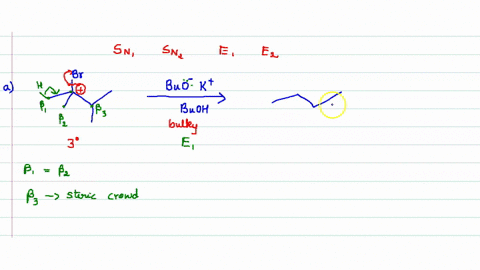 SN1 SN2 E1 E2
a) H Br ⊕ β1 β2 β3
BuO⁻ K⁺
BuOH
bulky
3° E1
β1 = β2
β3 → steric crowd